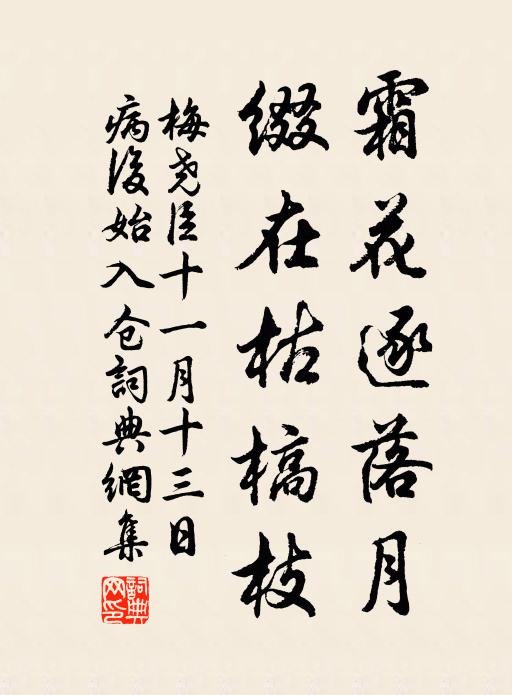 霜花逐落月
綴在枯槁枝
梅堯臣十一月十三日
病後始入仓詞典網集
詞典网印